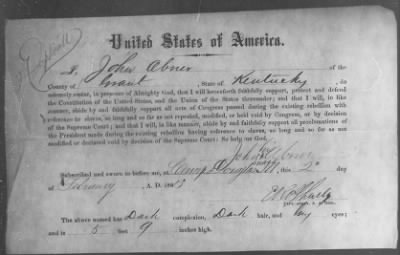 Duplicate
United States of America.
I, John Abner of the
County of Grant, State of Kentucky, do
solemnly swear, in presence of Almighty God, that I will henceforth faithfully support, protect and defend
the Constitution of the United States, and the Union of the States thereunder; and that I will, in like
manner, abide by and faithfully support all acts of Congress passed during the existing rebellion with
reference to slaves, so long and so far as not repealed, modified, or held void by Congress, or by decision
of the Supreme Court; and that I will, in like manner, abide by and faithfully support all proclamations of the
President made during the existing rebellion having reference to slaves, so long and so far as not
modified or declared void by decision of the Supreme Court. So help me God.
John Abner
Subscribed and sworn to before me, at Camp Douglas Ill. this 2 day
of February A. D. 186
The above named has Dark complexion, Dark hair, and eyes;
and is 5 feet 9 inches high.